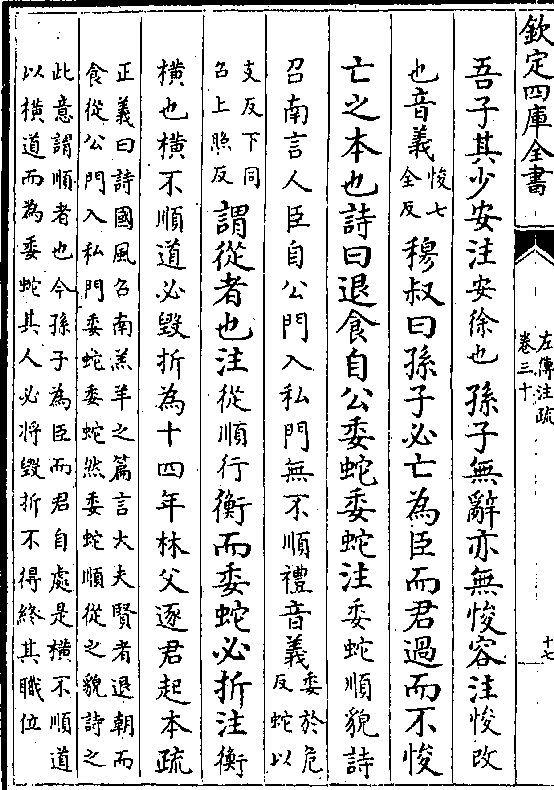 欽定四庫全書
左傳注疏
卷三十
十七
吾子其少安注安徐也孫子無辭亦無悛容注悛改
也音義悛七
全反穆叔曰孫子必亡為臣而君過而不悛
亡之本也詩曰退食自公委蛇委蛇注委蛇順貌詩
召南言人臣自公門入私門無不順禮音義委於危
反蛇以
支反下同
召上照反謂從者也注從順行衡而委蛇必折注衡
橫也橫不順道必毀折為十四年林父逐君起本疏
正義曰詩國風召南羔羊之篇言大夫賢者退朝而
食從公門入私門委蛇委蛇然委蛇順從之貌詩之
此意謂順者也今孫子為臣而君自處是橫不順道
以橫道而為委蛇其人必將毀折不得終其職位